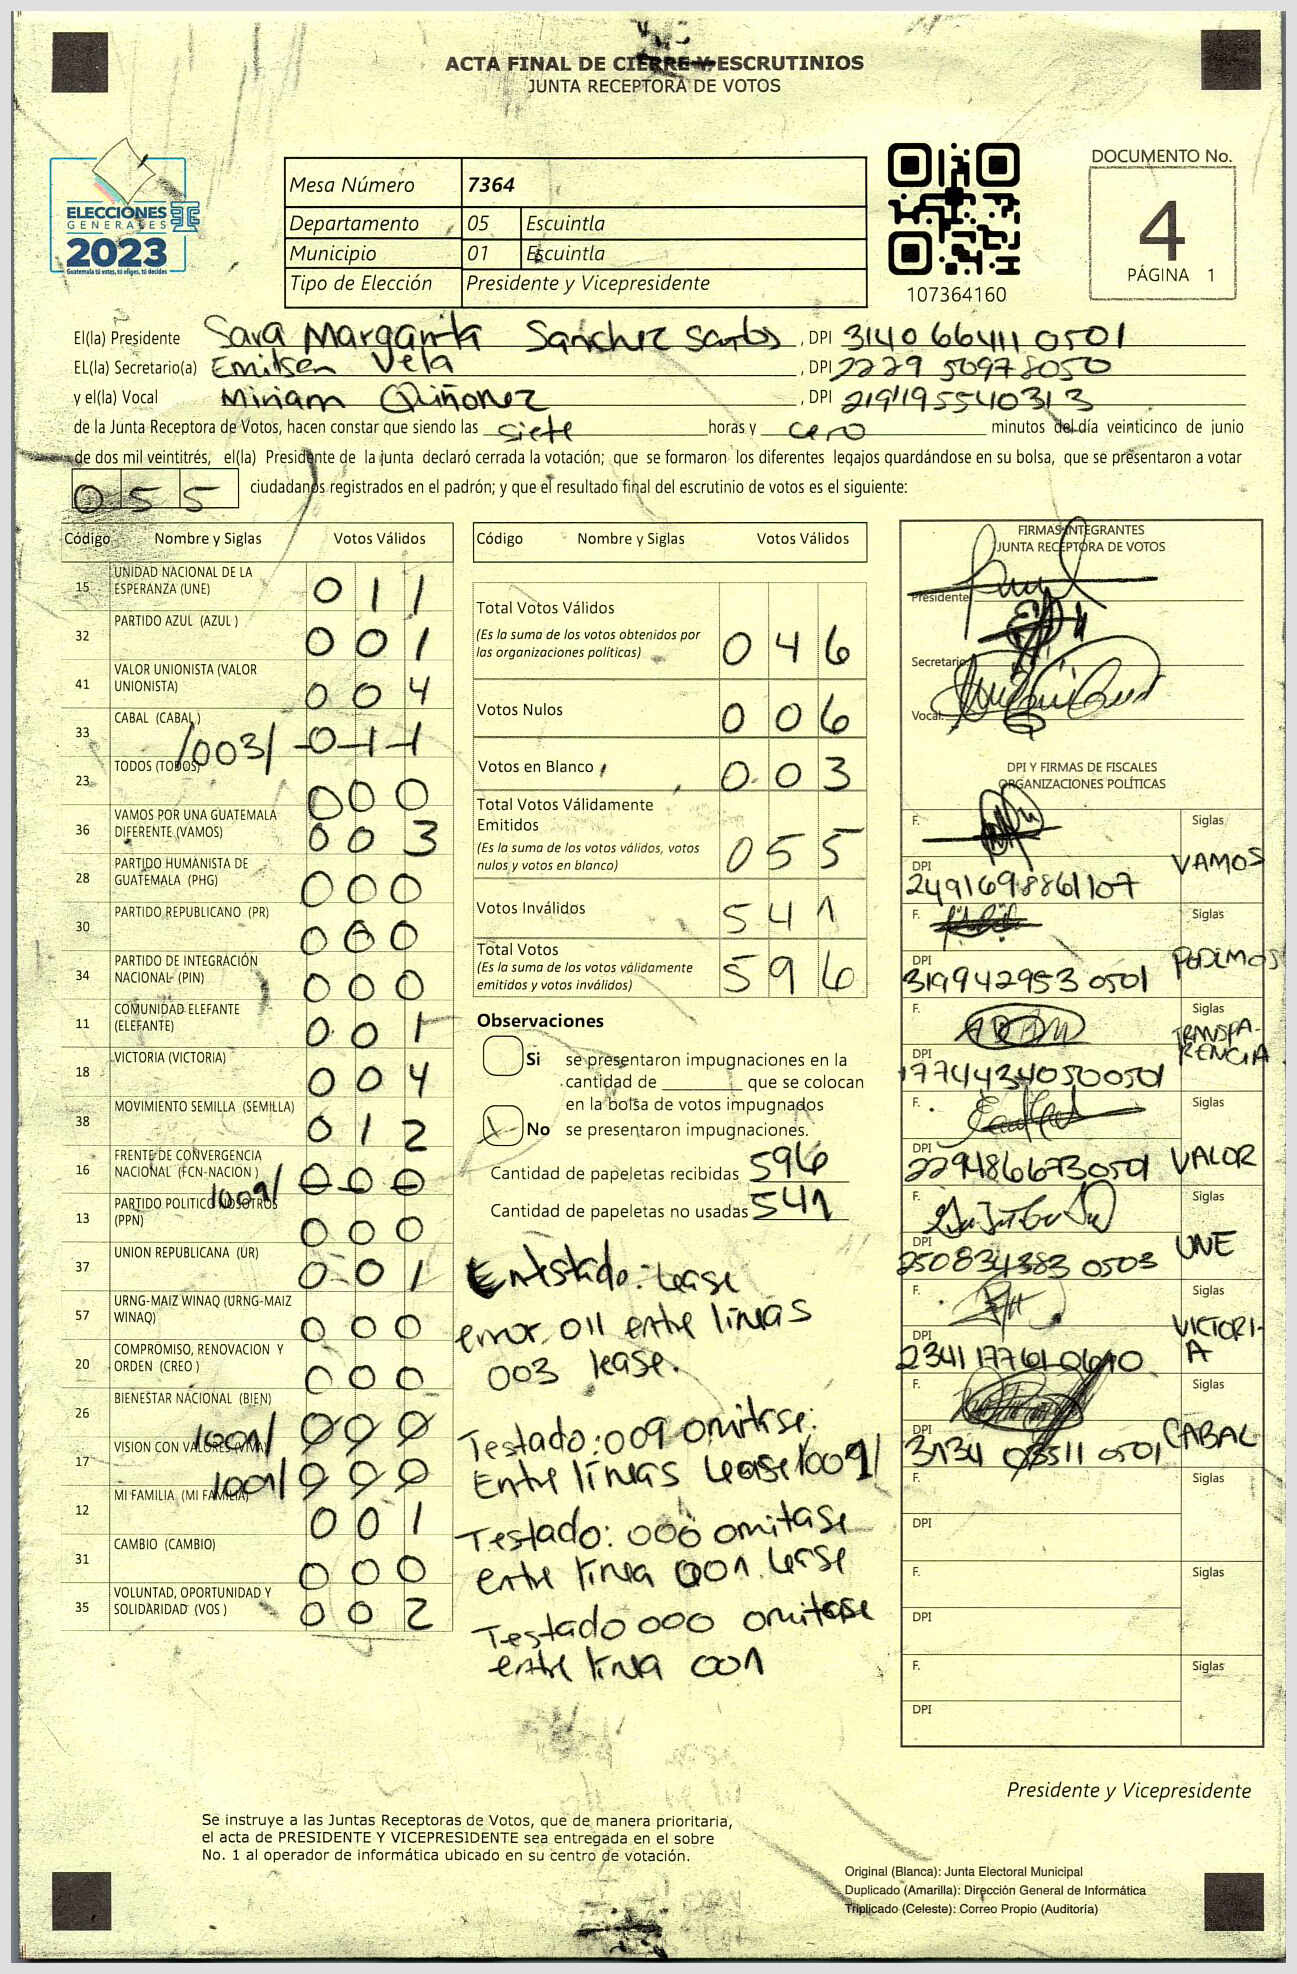 ACTA FINAL DE CIERRE Y ESCRUTINIOS
JUNTA RECEPTORA DE VOTOS
ELECCIONES
GENERALES
2023
Guatemala tú votas, tú eliges, tú decides
Mesa Número 7364
Departamento 05 Escuintla
Municipio 01 Escuintla
Tipo de Elección Presidente y Vicepresidente
107364160
DOCUMENTO No.
4
PÁGINA 1
El(la) Presidente Sara Margarita Sanchez Santos , DPI 3140 66411 0501
EL(la) Secretario(a) Emitsen Vela , DPI 2229 50978050
y el(la) Vocal Miriam Quiñonez , DPI 2191195540313
de la Junta Receptora de Votos, hacen constar que siendo las siete horas y cero minutos del día veinticinco de junio
de dos mil veintitrés, el(la) Presidente de la junta declaró cerrada la votación; que se formaron los diferentes legajos guardándose en su bolsa, que se presentaron a votar
055 ciudadanos registrados en el padrón; y que el resultado final del escrutinio de votos es el siguiente:
Código Nombre y Siglas Votos Válidos
15 UNIDAD NACIONAL DE LA ESPERANZA (UNE) 011
32 PARTIDO AZUL (AZUL ) 001
41 VALOR UNIONISTA (VALOR UNIONISTA) 004
33 CABAL (CABAL ) /003/ 011
23 TODOS (TODOS) 000
36 VAMOS POR UNA GUATEMALA DIFERENTE (VAMOS) 003
28 PARTIDO HUMANISTA DE GUATEMALA (PHG) 000
30 PARTIDO REPUBLICANO (PR) 000
34 PARTIDO DE INTEGRACIÓN NACIONAL (PIN) 000
11 COMUNIDAD ELEFANTE (ELEFANTE) 001
18 VICTORIA (VICTORIA) 004
38 MOVIMIENTO SEMILLA (SEMILLA) 012
16 FRENTE DE CONVERGENCIA NACIONAL (FCN-NACION ) /009/ 000
13 PARTIDO POLITICO NOSOTROS (PPN) 000
37 UNION REPUBLICANA (UR) 001
57 URNG-MAIZ WINAQ (URNG-MAIZ WINAQ) 000
20 COMPROMISO, RENOVACION Y ORDEN (CREO ) 000
26 BIENESTAR NACIONAL (BIEN) /001/ 000
17 VISION CON VALORES (VIVA) /001/ 000
12 MI FAMILIA (MI FAMILIA) 001
31 CAMBIO (CAMBIO) 000
35 VOLUNTAD, OPORTUNIDAD Y SOLIDARIDAD (VOS ) 002
Código Nombre y Siglas Votos Válidos
Total Votos Válidos
(Es la suma de los votos obtenidos por
las organizaciones políticas) 046
Votos Nulos 006
Votos en Blanco 003
Total Votos Válidamente
Emitidos
(Es la suma de los votos válidos, votos
nulos y votos en blanco) 055
Votos Inválidos 541
Total Votos
(Es la suma de los votos válidamente
emitidos y votos inválidos) 596
Observaciones
Si se presentaron impugnaciones en la
cantidad de ________ que se colocan
en la bolsa de votos impugnados
No se presentaron impugnaciones.
Cantidad de papeletas recibidas 596
Cantidad de papeletas no usadas 541
Entestado: lease
error 011 entre líneas
003 lease.
Testado: 009 omitirse:
Entre líneas lease /009/
Testado: 000 omitase
entre linea 001 lease
Testado 000 omitase
entre linea 001
FIRMAS INTEGRANTES
JUNTA RECEPTORA DE VOTOS
Presidente
Secretario
Vocal
DPI Y FIRMAS DE FISCALES
ORGANIZACIONES POLÍTICAS
F. Siglas
DPI 2491698861107 VAMOS
F. Siglas
DPI 319942953 0501 PODEMOS
F. Siglas
DPI 17744340500501 TRANSPARENCIA
F. Siglas
DPI 2294866730501 VALOR
F. Siglas
DPI 250834383 0503 UNE
F. Siglas
DPI 2341177610610 VICTORI-A
F. Siglas
DPI 3134 03511 0501 CABAL
F. Siglas
DPI
F. Siglas
DPI
F. Siglas
DPI
Presidente y Vicepresidente
Se instruye a las Juntas Receptoras de Votos, que de manera prioritaria,
el acta de PRESIDENTE Y VICEPRESIDENTE sea entregada en el sobre
No. 1 al operador de informática ubicado en su centro de votación.
Original (Blanca): Junta Electoral Municipal
Duplicado (Amarilla): Dirección General de Informática
Triplicado (Celeste): Correo Propio (Auditoría)